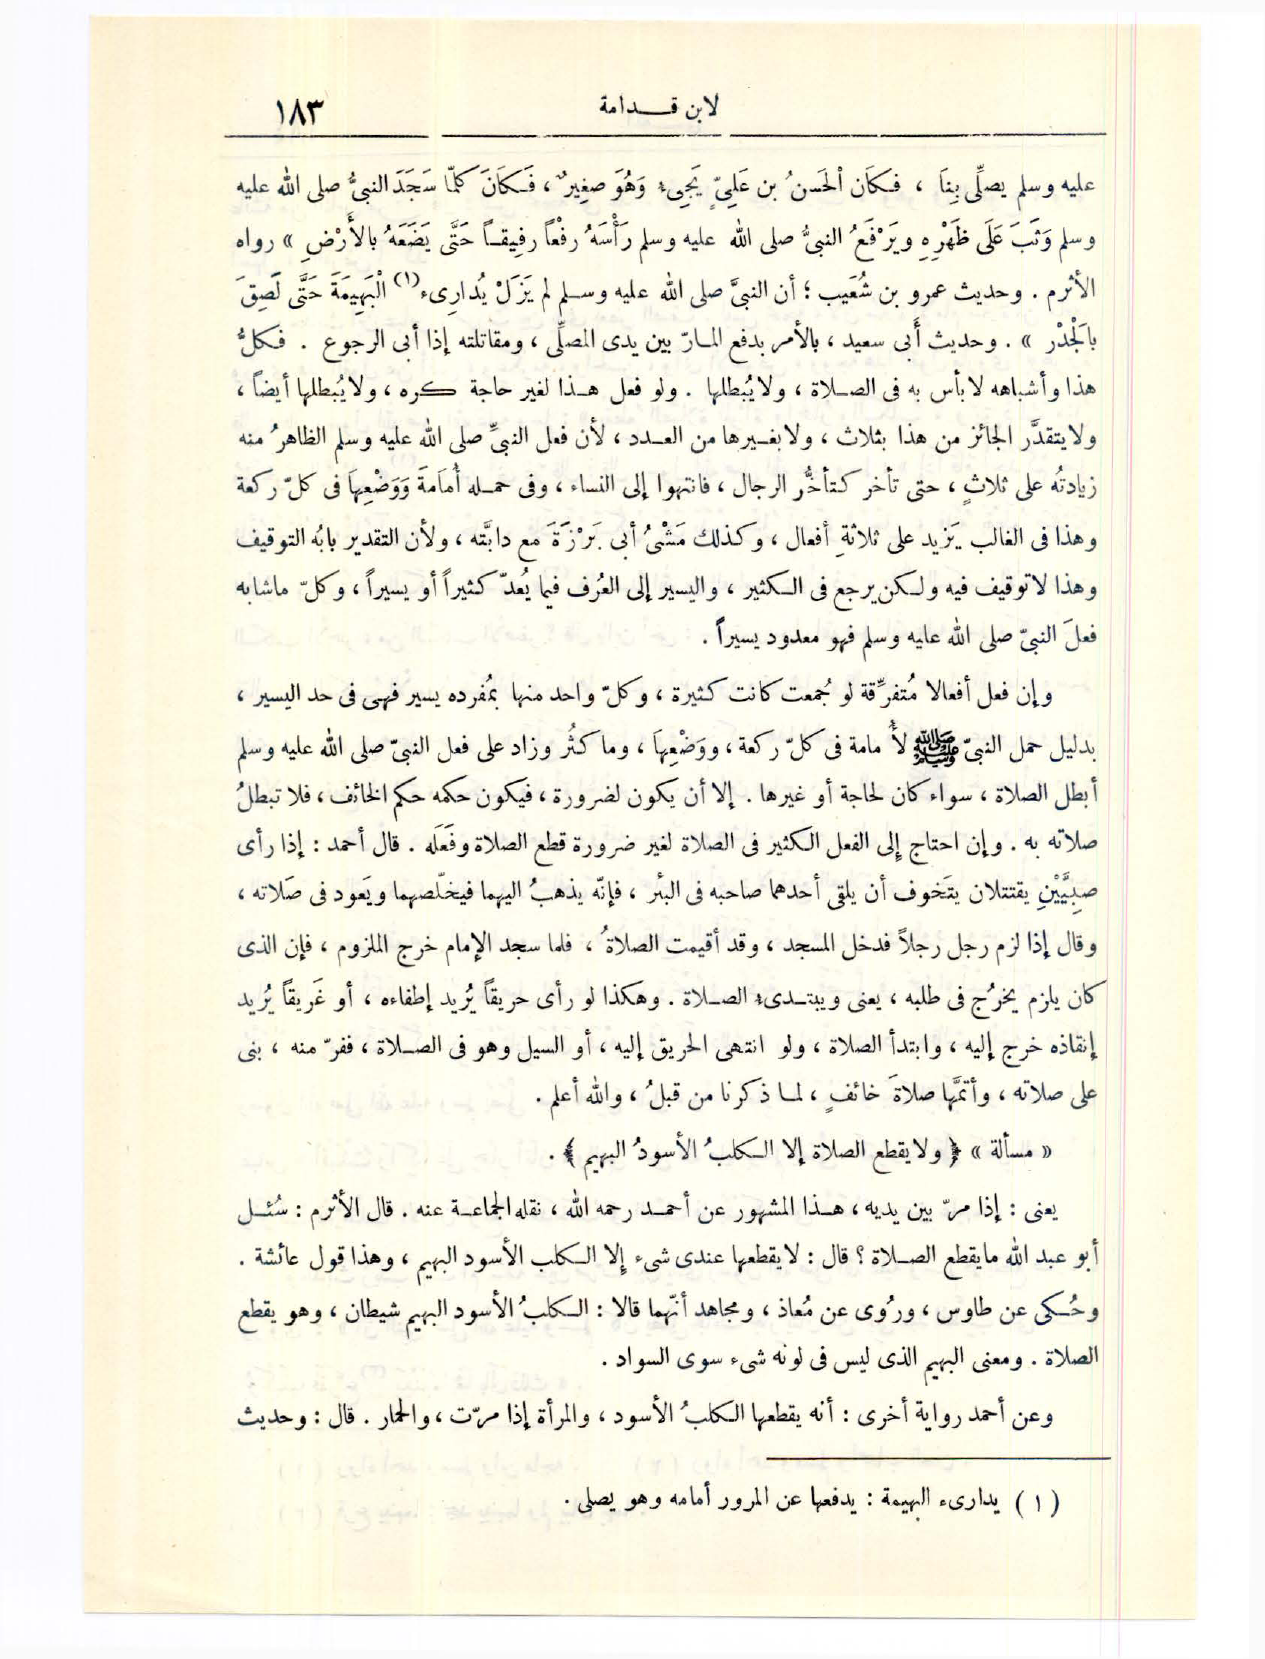 لابن قدامة
١٨٣
عليه وسلم يصلِّى بِنَا ، فكَان اْلحَسنُ بن عَلِيٍّ يَجِىء وَهُوَ صغِيرٌ ، فَكَانَ كلمّا سَجَدَ النبىُّ صلى الله عليه
وسلم وَثَبَ عَلَى ظَهْرِهِ ويَرْفَعُ النبىُّ صلى الله عليه وسلم رَأْسَهُ رفْعاً رفِيقاً حَتَّى يَضَعَهُ بالأَرْضِ » رواه
الأثرم . وحديث عمرو بن شُعَيب ؛ أن النبىَّ صلى الله عليه وسلم لم يَزَلْ يُدارِىء(١) الْبَهِيمَةَ حَتَّى لَصِقَ
بالَجْدْر » . وحديث أَبى سعيد ، بالأمر بدفع المارّ بين يدى المصلِّى ، ومقاتلته إذا أبى الرجوع . فكلُّ
هذا وأشباهه لا بأس به فى الصلاة ، ولا يُبطلها . ولو فعل هذا لغير حاجة كره ، ولا يُبطلها أيضاً ،
ولا يتقدَّر الجائز من هذا بثلاث ، ولا بغيرها من العدد ، لأن فعل النبىِّ صلى الله عليه وسلم الظاهرُ منه
زيادتُه على ثلاثٍ ، حتى تأخر كتأخُّر الرجال ، فانتهوا إلى النساء ، وفى حمله أُمَامةَ وَوَضْعِهَا فى كلّ ركعة
وهذا فى الغالب يَزيد على ثلاثةِ أفعال ، وكذلك مَشْىُ أبى بَرْزَةَ مع دابَّته ، ولأن التقدير بابُه التوقيف
وهذا لا توقيف فيه ولكن يرجع فى الكثير ، واليسير إلى العُرف فيما يُعدّ كثيراً أو يسيراً ، وكلّ ماشابه
فعلَ النبىّ صلى الله عليه وسلم فهو معدود يسيراً .
وإن فعل أفعالا مُتفرِّقة لو جُمعت كانت كثيرة ، وكلّ واحد منها بمُفرده يسير فهى فى حد اليسير ،
بدليل حمل النبىّ ﷺ لأُ مامة فى كلّ ركعة ، ووَضْعِهَا ، وما كثُر وزاد على فعل النبىّ صلى الله عليه وسلم
أبطل الصلاة ، سواء كان لحاجة أو غيرها . إلا أن يكون لضرورة ، فيكون حكمه حكم الخائف ، فلا تبطلُ
صلاته به . وإن احتاج إلى الفعل الكثير فى الصلاة لغير ضرورة قطع الصلاة وفَعَلَه . قال أحمد : إذا رأى
صبِيَّيْنِ يقتتلان يتَخوف أن يلقى أحدهما صاحبه فى البئر ، فإنّه يذهبُ اليهما فيخلّصهما ويَعود فى صَلاته ،
وقال إذا لزم رجل رجلاً فدخل المسجد ، وقد أقيمت الصلاةُ ، فلما سجد الإمام خرج الملزوم ، فإن الذى
كان يلزم يخرُج فى طلبه ، يعنى ويبتدىء الصلاة . وهكذا لو رأى حريقاً يُريد إطفاءه ، أو غَريقاً يُريد
إنقاذه خرج إليه ، وابتدأ الصلاة ، ولو انتهى الحريق إليه ، أو السيل وهو فى الصلاة ، ففرّ منه ، بنى
على صلاته ، وأتمَّها صلاةَ خائفٍ ، لما ذكرنا من قبلُ ، والله أعلم .
« مسألة » ﴿ ولا يقطع الصلاة إلا الكلبُ الأسودُ البهيم ﴾ .
يعنى : إذا مرّ بين يديه ، هذا المشهور عن أحمد رحمه الله ، نقله الجماعة عنه . قال الأثرم : سُئل
أبو عبد الله مايقطع الصلاة ؟ قال : لا يقطعها عندى شىء إلا الكلب الأسود البهيم ، وهذا قول عائشة .
وحُكى عن طاوس ، ورُوى عن مُعاذ ، ومجاهد أنّهما قالا : الكلبُ الأسود البهيم شيطان ، وهو يقطع
الصلاة . ومعنى البهيم الذى ليس فى لونه شىء سوى السواد .
وعن أحمد رواية أخرى : أنه يقطعها الكلبُ الأسود ، والمرأة إذا مرّت ، والحمار . قال : وحديث
( ١ ) يدارىء البهيمة : يدفعها عن المرور أمامه وهو يصلى .